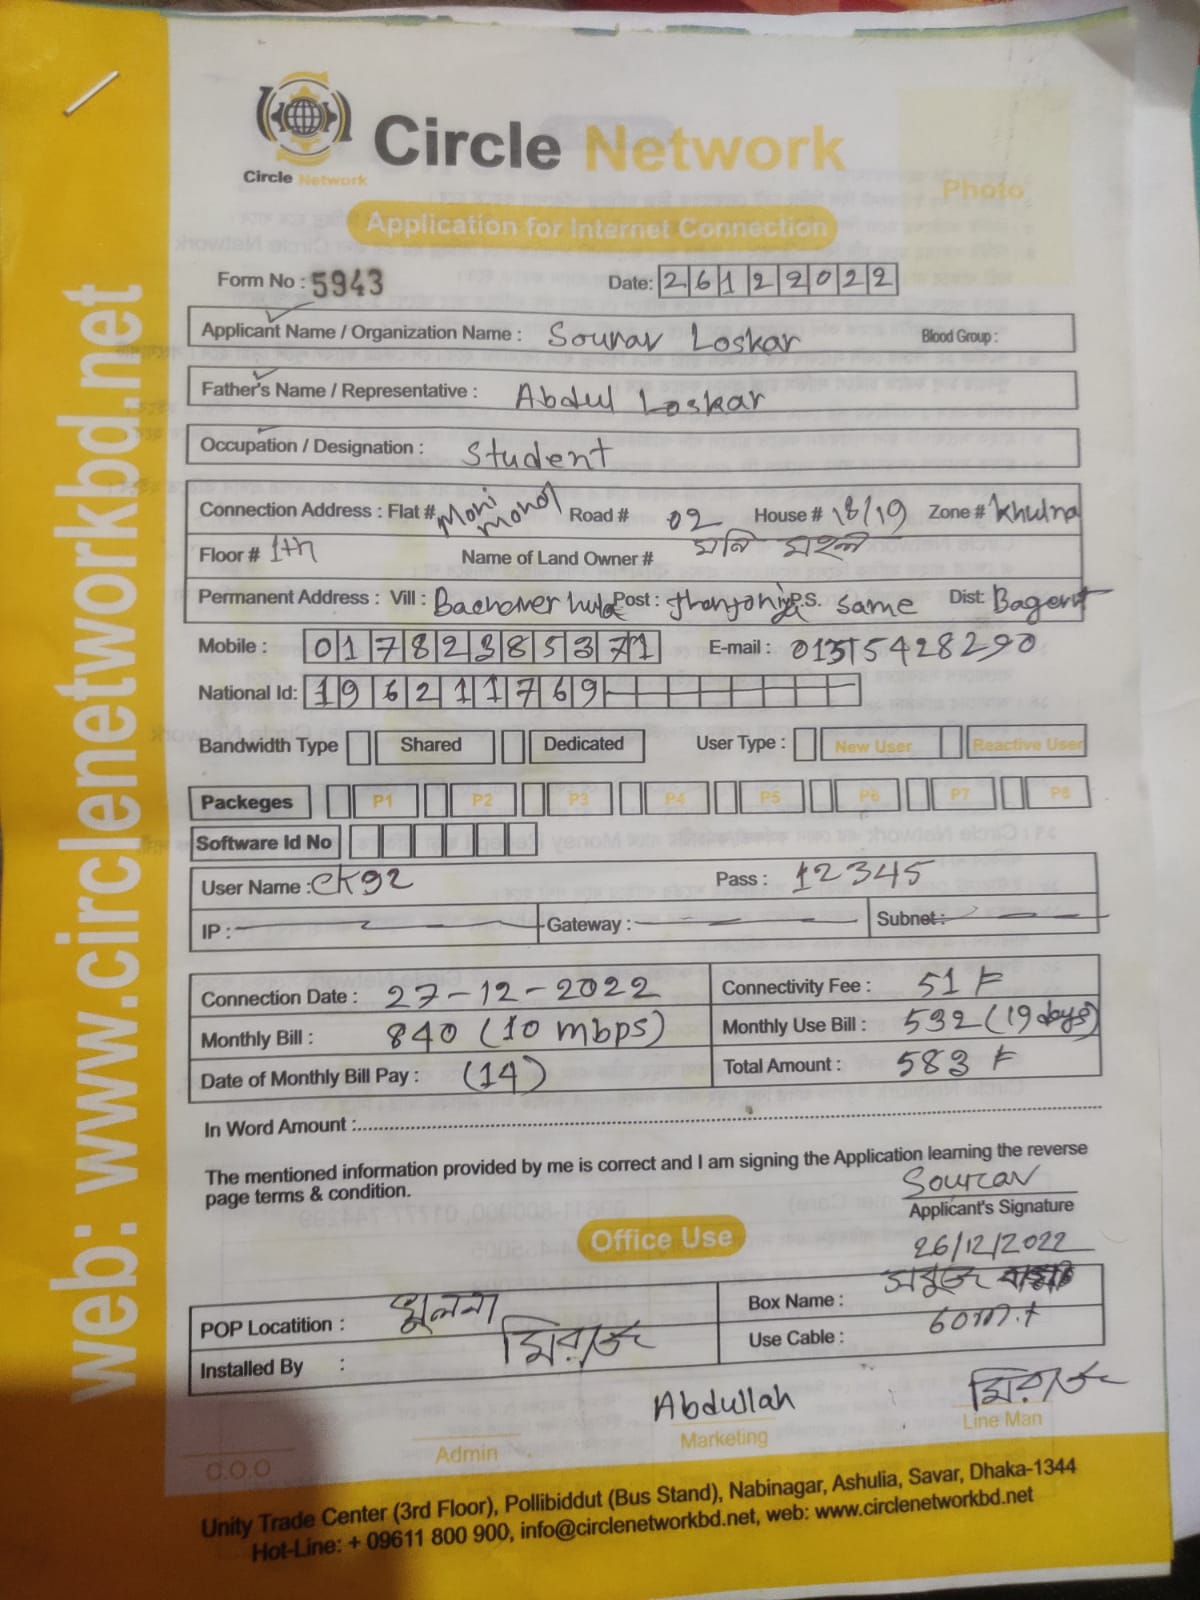 web: www.circlenetworkbd.net
Circle Network
Circle Network
Photo
Application for Internet Connection
Form No : 5943 Date: 26122022
Applicant Name / Organization Name : Sourav Loskar Blood Group :
Father's Name / Representative : Abdul Loskar
Occupation / Designation : Student
Connection Address : Flat # Moni Mohol Road # 02 House # 18/19 Zone # Khulna
Floor # 1th Name of Land Owner # মনি মহল
Permanent Address : Vill : Post : P.S. same Dist:
Mobile : 01782385371 E-mail :
National Id: 196211769
Bandwidth Type Shared Dedicated User Type : New User Reactive User
Packeges P1 P2 P3 P4 P5 P6 P7 P8
Software Id No
User Name : CK92 Pass : 12345
IP : Gateway : Subnet:
Connection Date : 27-12-2022 Connectivity Fee : 51
Monthly Bill : 840 (10 mbps) Monthly Use Bill : 532 (19 days)
Date of Monthly Bill Pay : (14) Total Amount : 583
In Word Amount :
The mentioned information provided by me is correct and I am signing the Application learning the reverse
page terms & condition.
Sourav
Applicant's Signature
Office Use
26/12/2022
POP Locatition : খুলনা Box Name : সবুজ
Installed By : মিরাজ Use Cable :
Abdullah মিরাজ
C.O.O Admin Marketing Line Man
Unity Trade Center (3rd Floor), Pollibiddut (Bus Stand), Nabinagar, Ashulia, Savar, Dhaka-1344
Hot-Line: + 09611 800 900, info@circlenetworkbd.net, web: www.circlenetworkbd.net